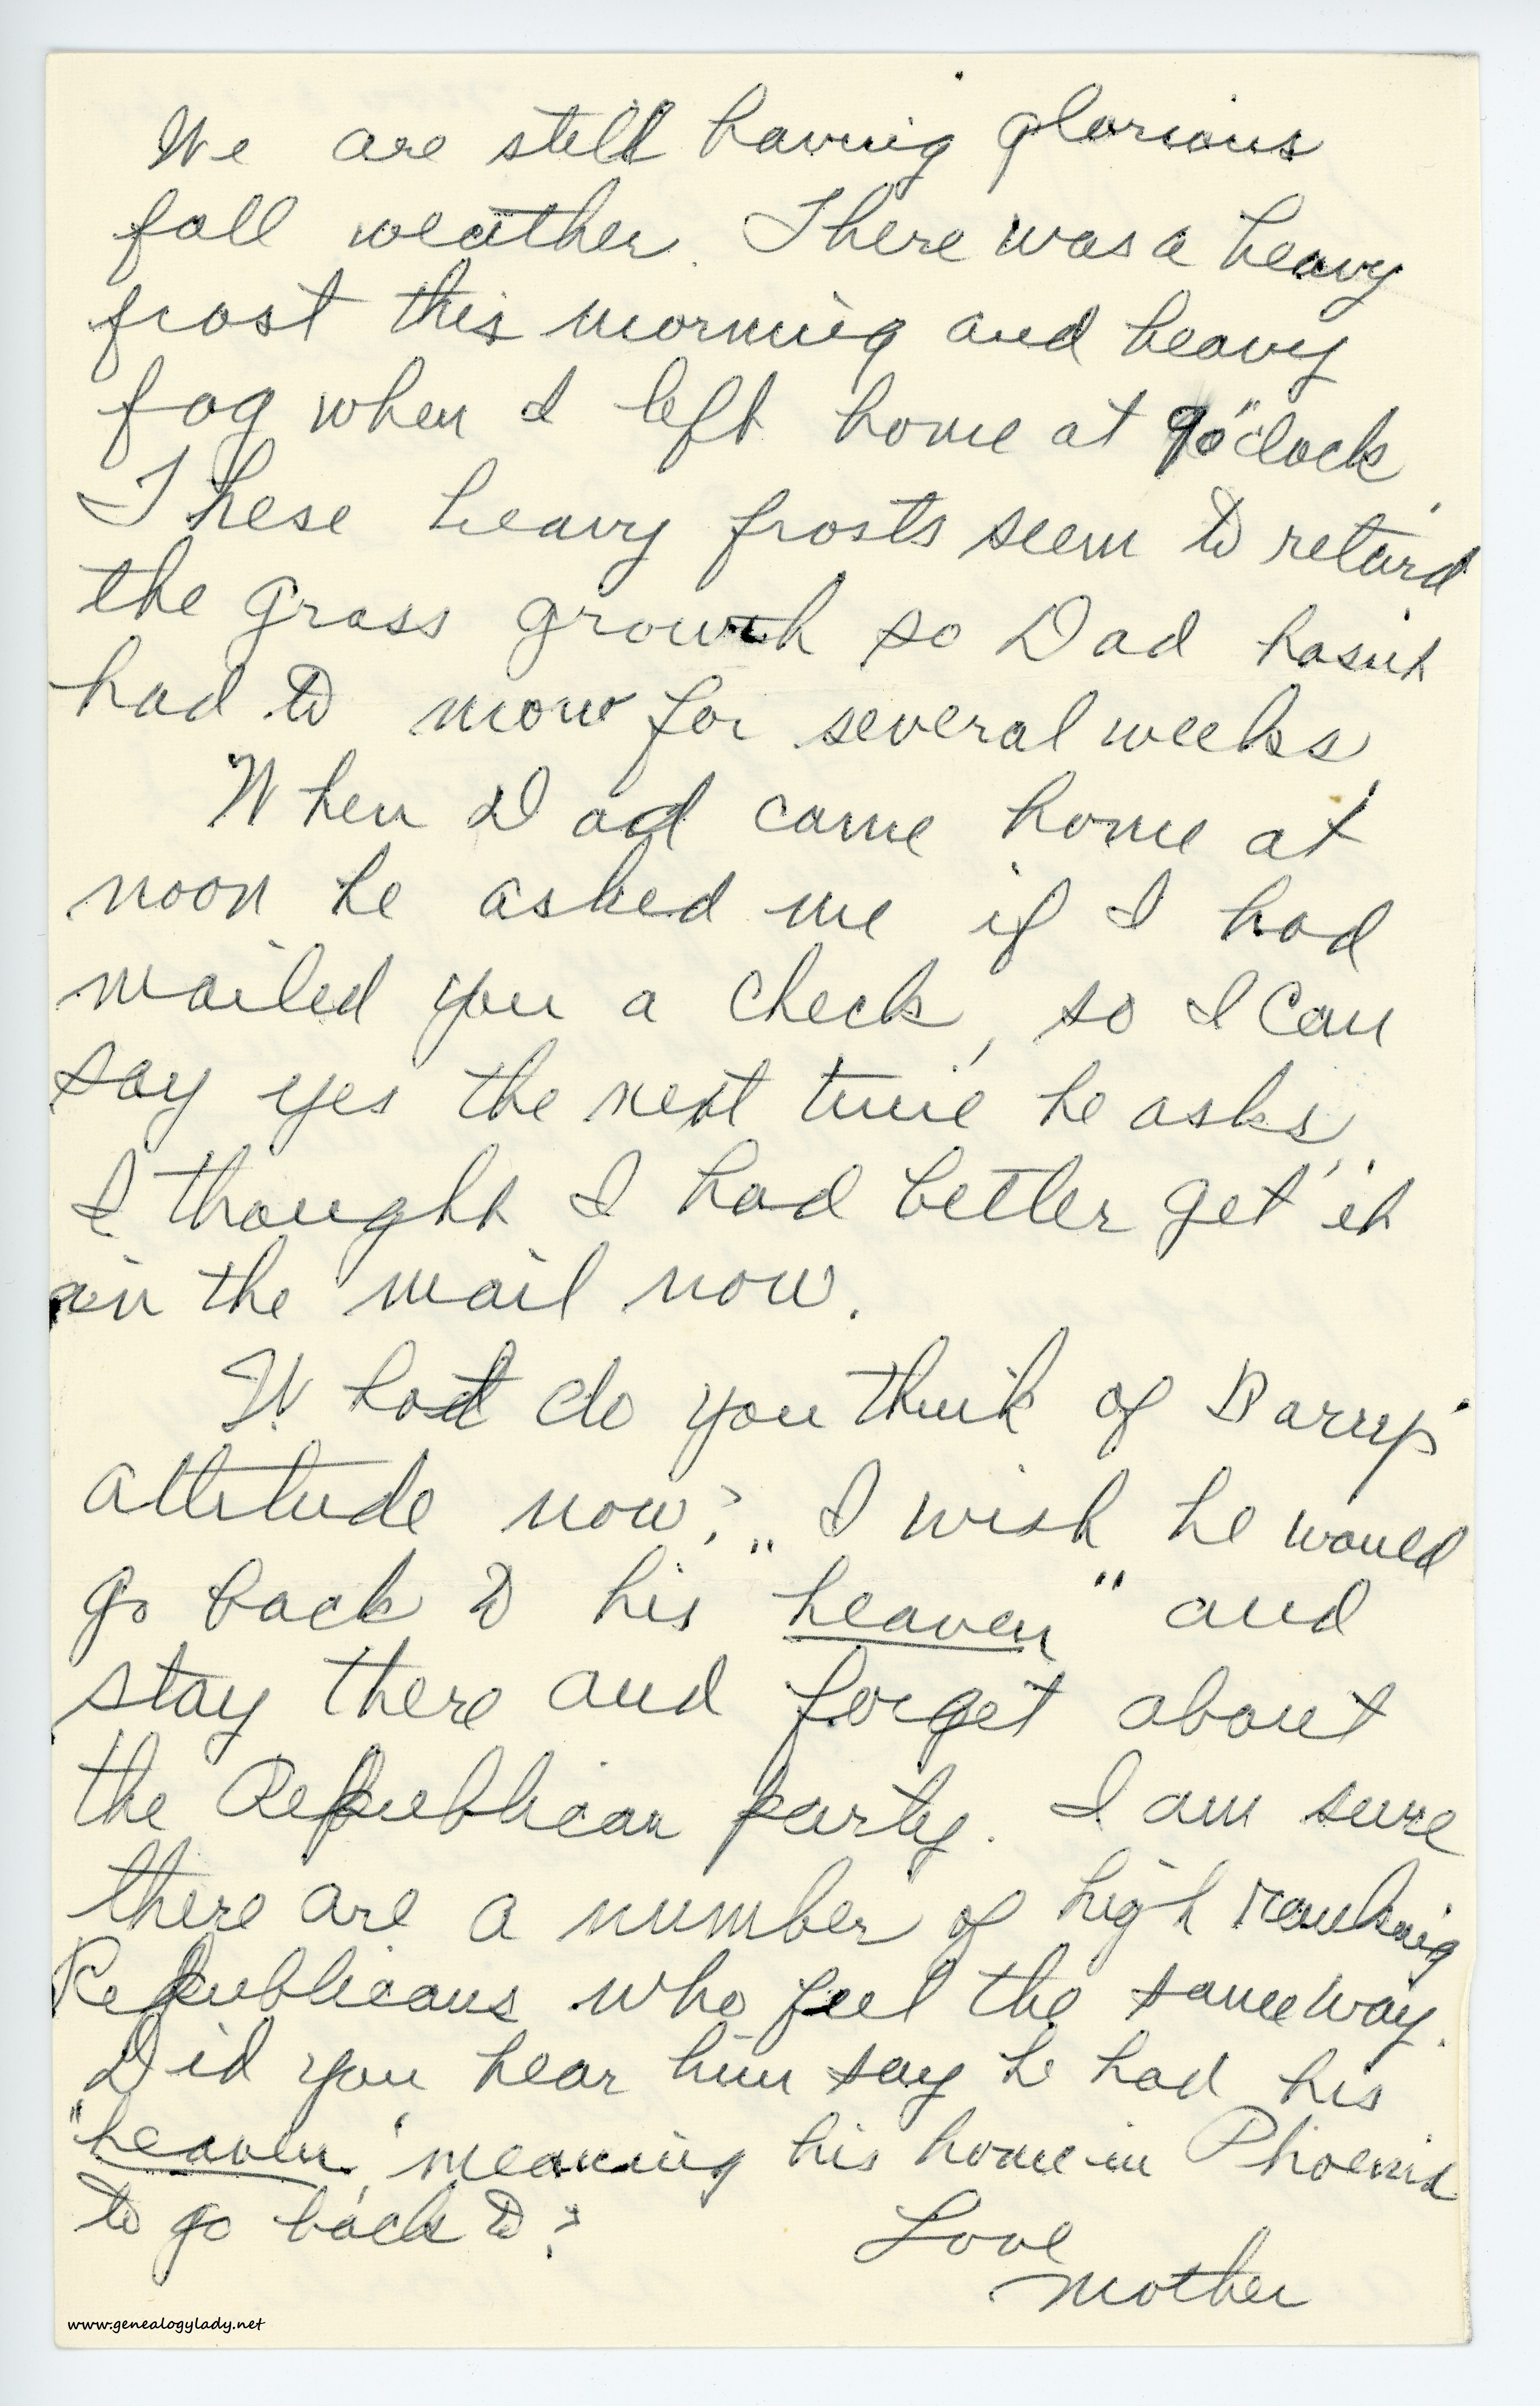 We are still having glorious
fall weather. There was a heavy
frost this morning and heavy
fog when I left home at 9 o'clock.
These heavy frosts seem to retard
the grass growth so Dad hasn't
had to mow for several weeks.
When Dad came home at
noon he asked me if I had
mailed you a check, so I can
say yes the next time he asks.
I thought I had better get it
in the mail now.
What do you think of Barry's
attitude now? I wish he would
go back to his "heaven" and
stay there and forget about
the Republican party. I am sure
there are a number of high ranking
Republicans who feel the same way.
Did you hear him say he had his
"heaven," meaning his home in Phoenix
to go back to?
Love
Mother
www.genealogylady.net